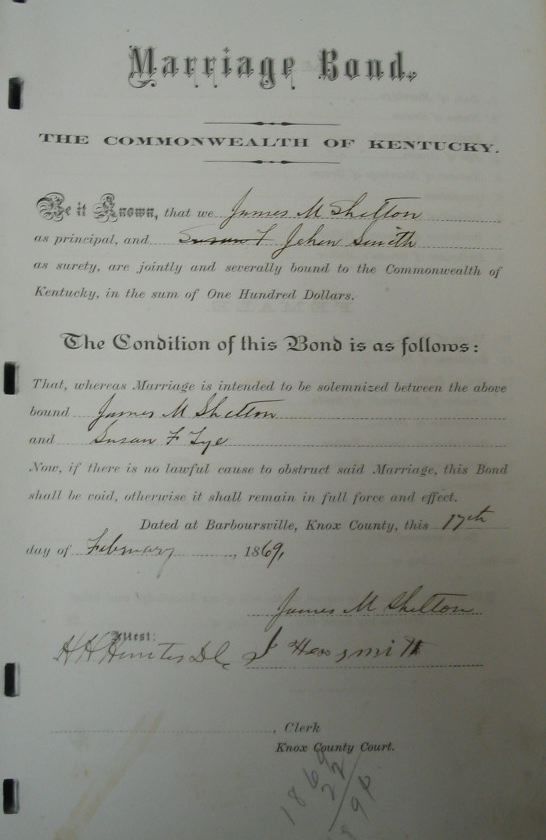 Marriage Bond.
THE COMMONWEALTH OF KENTUCKY.
Be it Known, that we James M Shelton
as principal, and Susan F John Smith
as surety, are jointly and severally bound to the Commonwealth of
Kentucky, in the sum of One Hundred Dollars.
The Condition of this Bond is as follows:
That, whereas Marriage is intended to be solemnized between the above
bound James M Shelton
and Susan F Tye
Now, if there is no lawful cause to obstruct said Marriage, this Bond
shall be void, otherwise it shall remain in full force and effect.
Dated at Barboursville, Knox County, this 17th
day of February, 1869,
James M Shelton
Attest:
H H D.C. J smith
, Clerk
Knox County Court.
1869
22